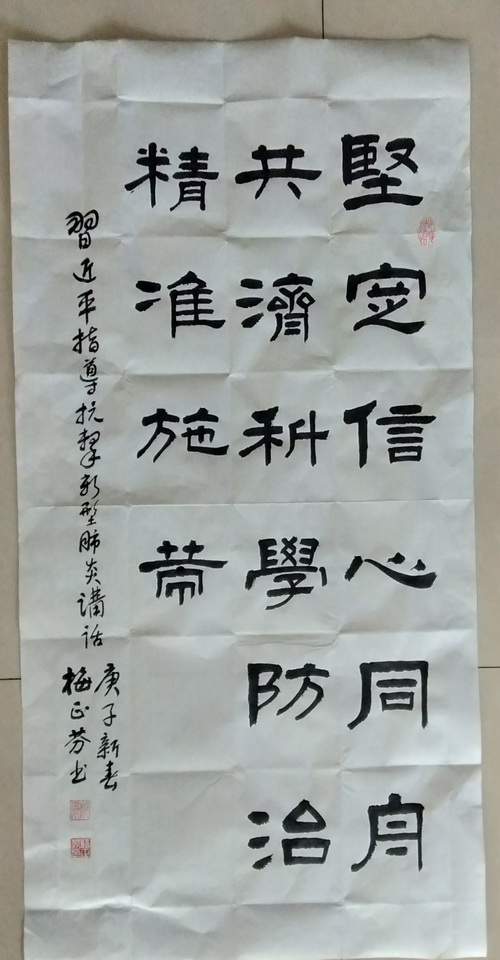 堅定信心同舟
共濟科學防治
精准施策
習近平指導抗擊新型肺炎講话
庚子新春
梅正芬书